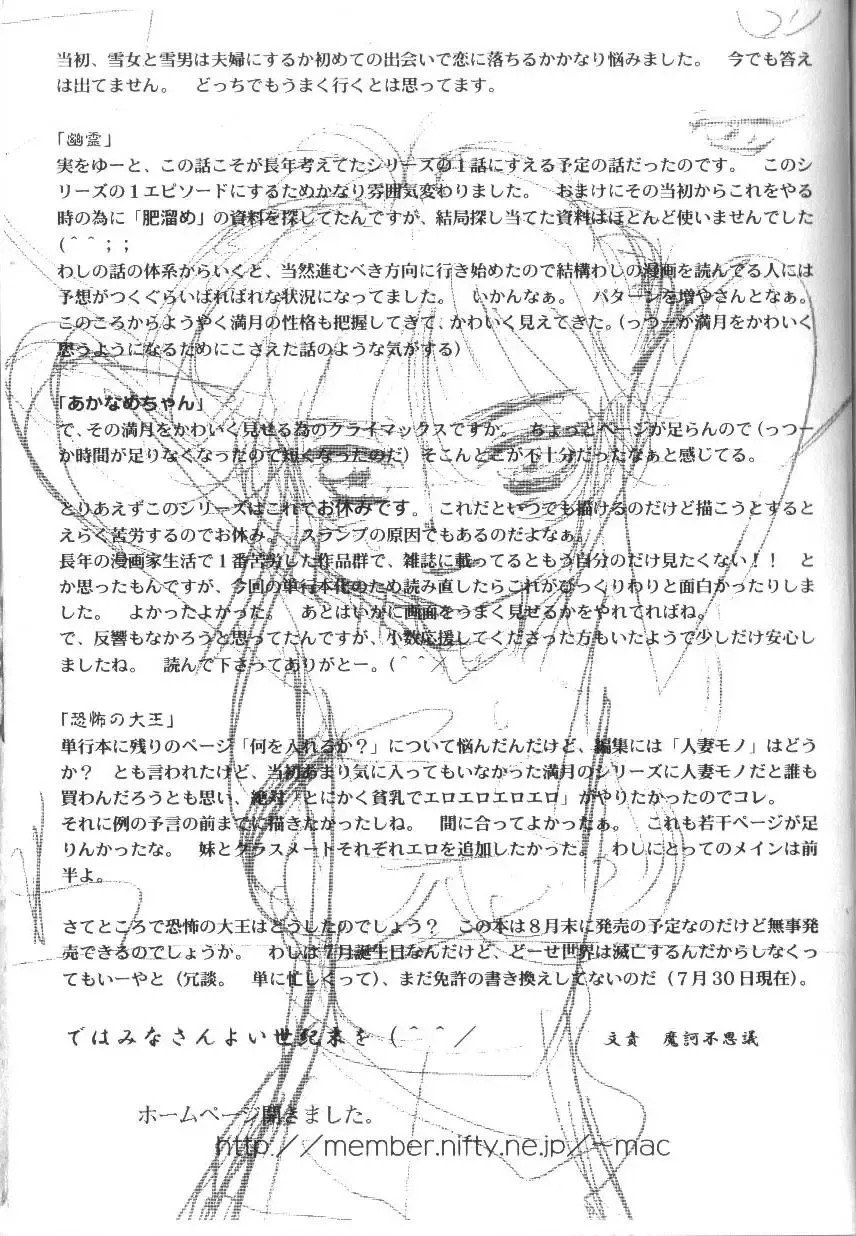 当初、雪女と雪男は夫婦にするか初めての出会いで恋に落ちるかかなり悩みました。　今でも答え
は出てません。　どっちでもうまく行くとは思ってます。
「幽霊」
実をゆーと、この話こそが長年考えてたシリーズの１話にすえる予定の話だったのです。　このシ
リーズの１エピソードにするためかなり雰囲気変わりました。　おまけにその当初からこれをやる
時の為に「肥溜め」の資料を探してたんですが、結局探し当てた資料はほとんど使いませんでした
(＾＾；；
わしの話の体系からいくと、当然進むべき方向に行き始めたので結構わしの漫画を読んでる人には
予想がつくぐらいばればれな状況になってました。　いかんなぁ。　パターンを増やさんとなぁ。
このころからようやく満月の性格も把握してきて、かわいく見えてきた。（っつーか満月をかわいく
思うようになるためにこさえた話のような気がする）
「あかなめちゃん」
で、その満月をかわいく見せる為のクライマックスですか。　ちょっとページが足らんので（っつー
か時間が足りなくなったので短くなったのだ）そこんとこが不十分だったなぁと感じてる。
とりあえずこのシリーズはこれでお休みです。　これだといつでも描けるのだけど描こうとすると
えらく苦労するのでお休み。　スランプの原因でもあるのだよなぁ。
長年の漫画家生活で１番苦労した作品群で、雑誌に載ってるともう自分のだけ見たくない！！　と
か思ったもんですが、今回の単行本化のため読み直したらこれがびっくりわりと面白かったりしま
した。　よかったよかった。　あとはいかに画面をうまく見せるかをやれてればね。
で、反響もなかろうと思ってたんですが、小数応援してくださった方もいたようで少しだけ安心し
ましたね。　読んで下さってありがとー。(＾＾／
「恐怖の大王」
単行本に残りのページ「何を入れるか？」について悩んだんだけど、編集には「人妻モノ」はどう
か？　とも言われたけど、当初あまり気に入ってもいなかった満月のシリーズに人妻モノだと誰も
買わんだろうとも思い、絶対「とにかく貧乳でエロエロエロエロ」がやりたかったのでコレ。
それに例の予言の前までに描きたかったしね。　間に合ってよかったぁ。　これも若干ページが足
りんかったな。　妹とクラスメートそれぞれエロを追加したかった。　わしにとってのメインは前
半よ。
さてところで恐怖の大王はどうしたのでしょう？　この本は８月末に発売の予定なのだけど無事発
売できるのでしょうか。　わしは７月誕生日なんだけど、どーせ世界は滅亡するんだからしなくっ
てもいーやと（冗談。　単に忙しくって）、まだ免許の書き換えしてないのだ（７月３０日現在）。
ではみなさんよい世紀末を（＾＾／　　文責　魔訶不思議
ホームページ開きました。
http://member.nifty.ne.jp/~mac